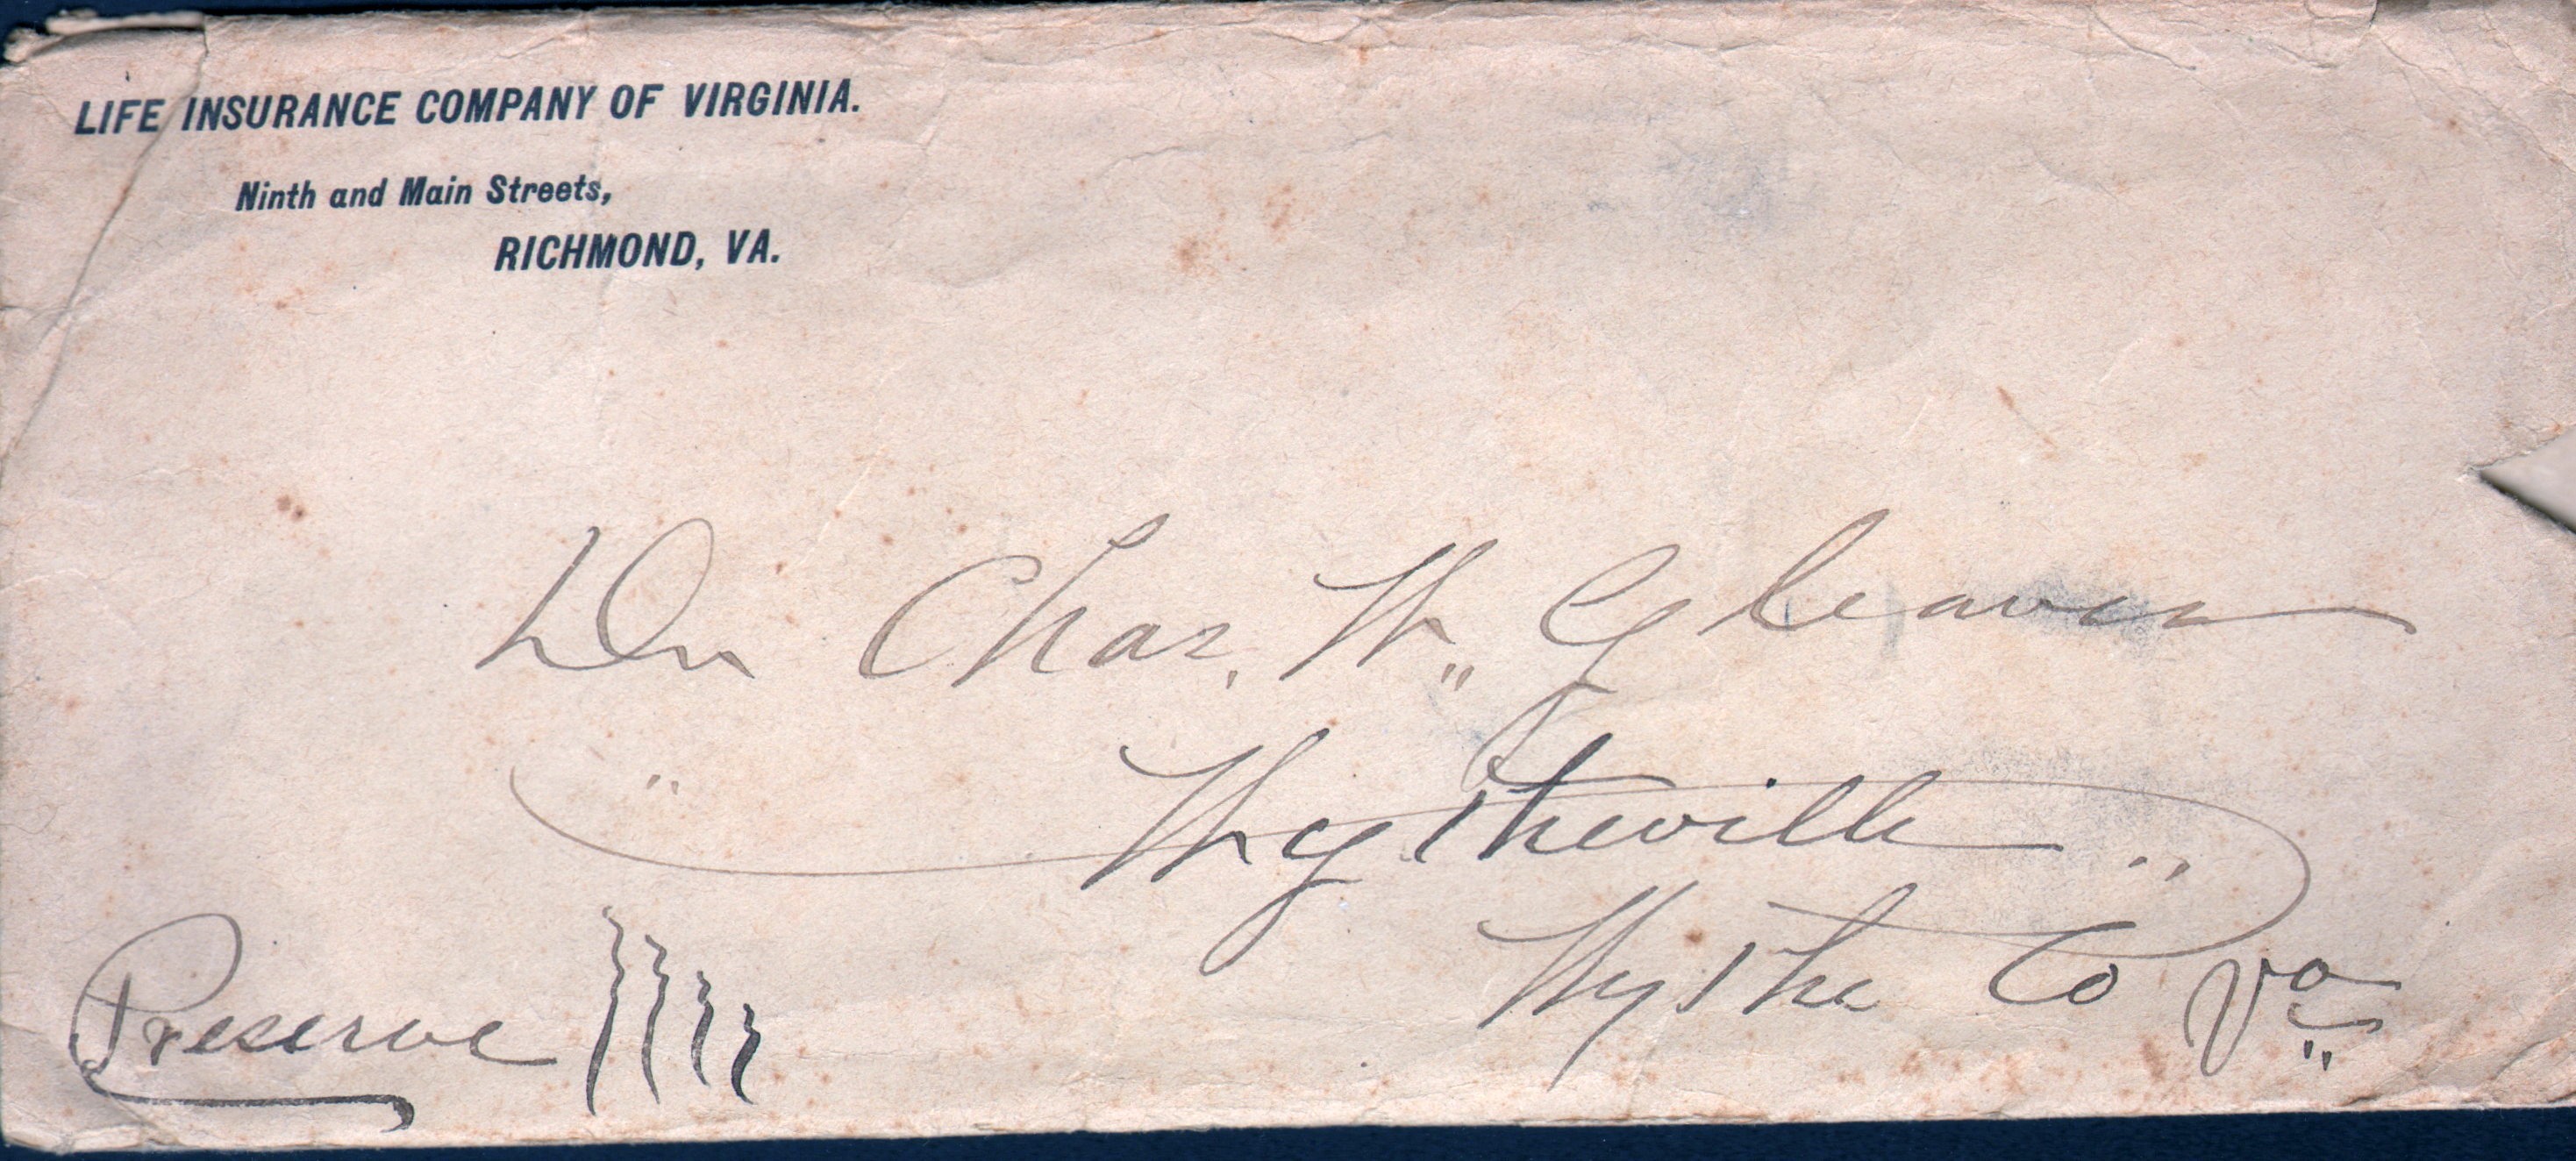 LIFE INSURANCE COMPANY OF VIRGINIA.
Ninth and Main Streets,
RICHMOND, VA.
Dr Chas. W. Gleaves
Wytheville
Wythe Co Va
Preserve